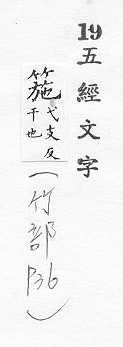 19 五經文字
箷 弋支反
干也
(竹部P36)